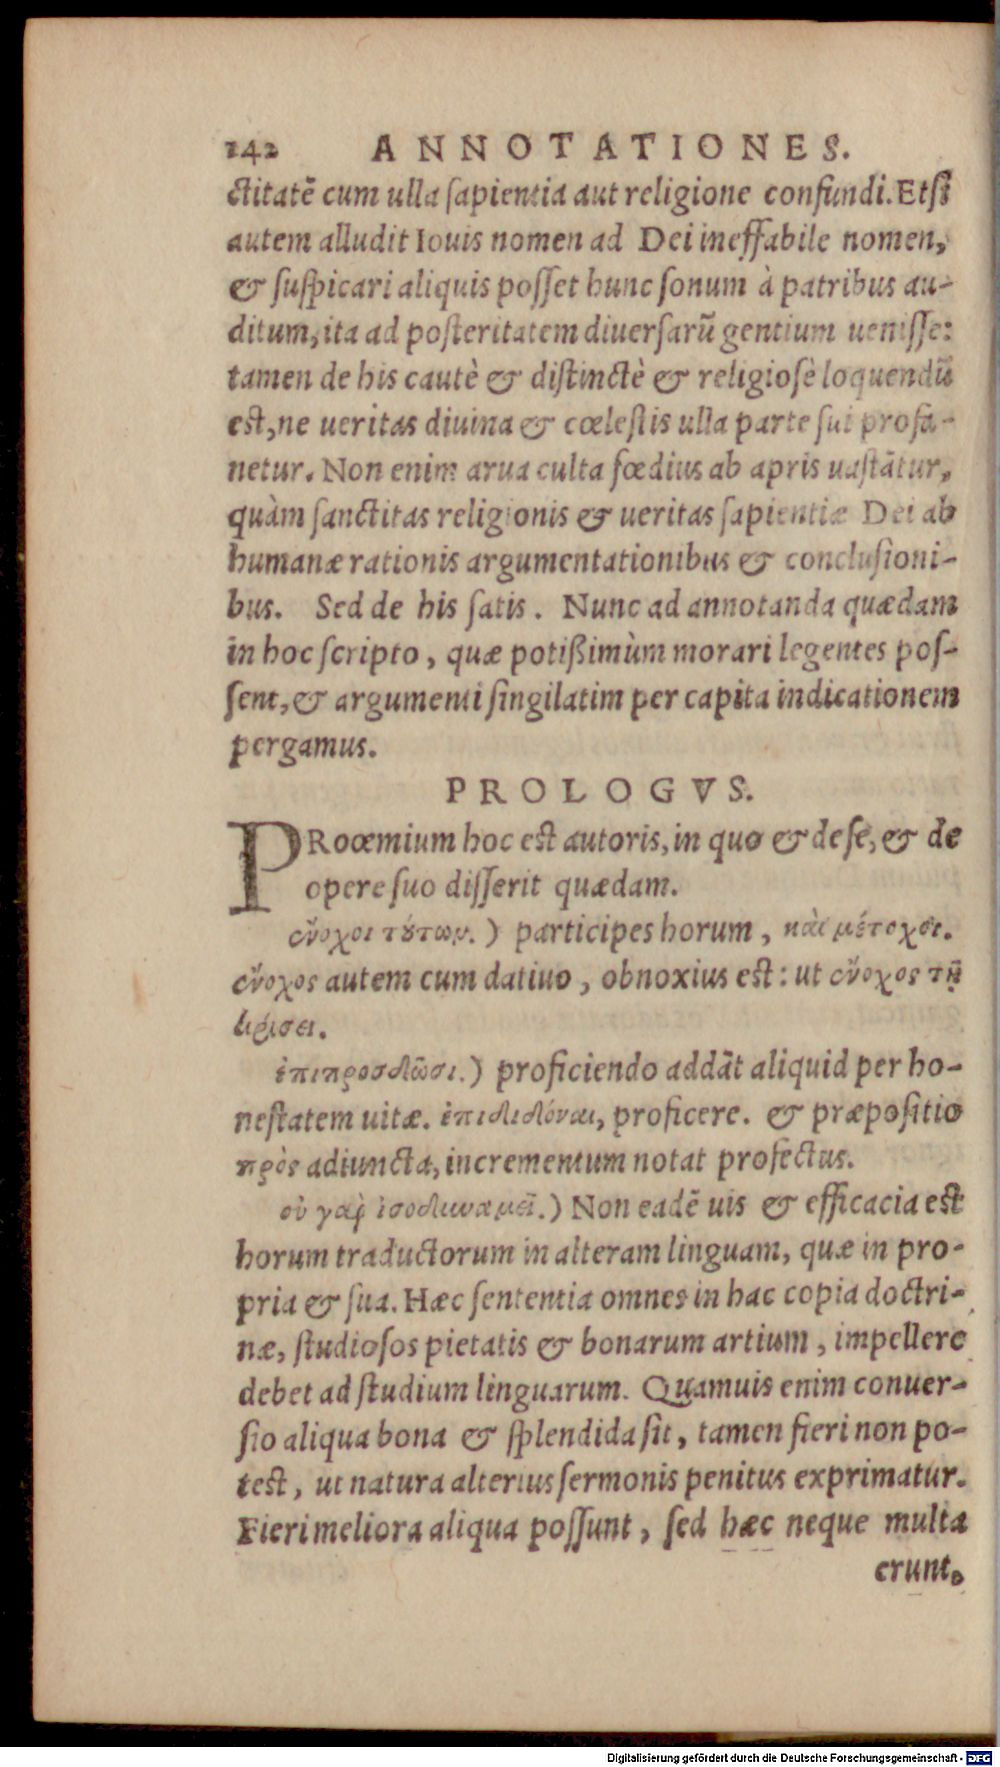 142 ANNOTATIONES.
ctitatē cum ulla sapientia aut religione confundi. Etsi
autem alludit Iouis nomen ad Dei ineffabile nomen,
& suspicari aliquis posset hunc sonum à patribus au-
ditum, ita ad posteritatem diuersarū gentium uenisse:
tamen de his cautè & distinctè & religiosè loquendū
est, ne ueritas diuina & cœlestis ulla parte sui profa-
netur. Non enim arua culta fœdius ab apris uastātur,
quàm sanctitas religionis & ueritas sapientiæ Dei ab
humanæ rationis argumentationibus & conclusioni-
bus. Sed de his satis. Nunc ad annotanda quædam
in hoc scripto, quæ potißimùm morari legentes pos-
sent, & argumenti singilatim per capita indicationem
pergamus.
PROLOGVS.
PRoœmium hoc est autoris, in quo & de se, & de
opere suo disserit quædam.
ἔνοχοι τούτων.) participes horum, καὶ μέτοχοι.
ἔνοχος autem cum datiuo, obnoxius est: ut ἔνοχος τῇ
κρίσει.
ἐπιπροσδῶσι.) proficiendo addāt aliquid per ho-
nestatem uitæ. ἐπιδιδόναι, proficere. & præpositio
πρὸς adiuncta, incrementum notat profectus.
οὐ γὰρ ἰσοδυναμεῖ.) Non eadē uis & efficacia est
horum traductorum in alteram linguam, quæ in pro-
pria & sua. Hæc sententia omnes in hac copia doctri-
næ, studiosos pietatis & bonarum artium, impellere
debet ad studium linguarum. Quamuis enim conuer-
sio aliqua bona & splendida sit, tamen fieri non po-
test, ut natura alterius sermonis penitus exprimatur.
Fieri meliora aliqua possunt, sed hæc neque multa
erunt.
Digitalisierung gefördert durch die Deutsche Forschungsgemeinschaft - DFG